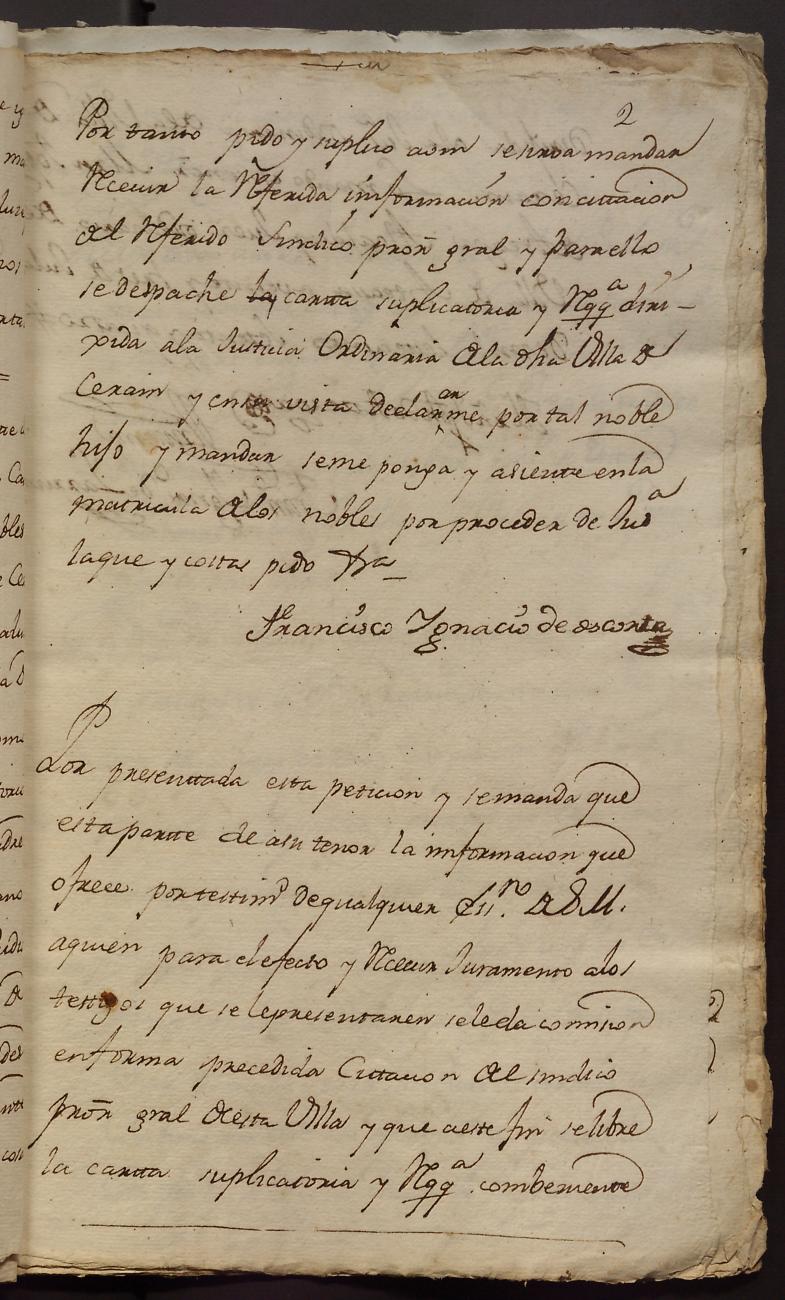 2
Por tanto pido y suplico a vm se sirva mandar
Recivir la Referida información con cittacion
del Referido Sindico pron gral y para ello
se despache la cartta suplicatoria y Rqqa diri-
xida ala Justicia Ordinaria dela dha Villa de
Cerain y en su vista declararme por tal noble
hijo y mandar seme ponga y asiente en la
matricula delos nobles por proceder de Jusa
laque y costas pido &a
Francisco Ygnacio de
Por presentada esta peticion y se manda que
esta partte de asu tenor la imformacion que
ofrece por testimo de qualquier Essno de S.M.
aquien para el efecto y Recivir Juramento alos
testigos que se le presentaren se le da comision
en forma precedida Cittacion del sindico
pron gral desta Villa y que a este fin se libre
la cartta suplicatoria y Rqqa combeniente